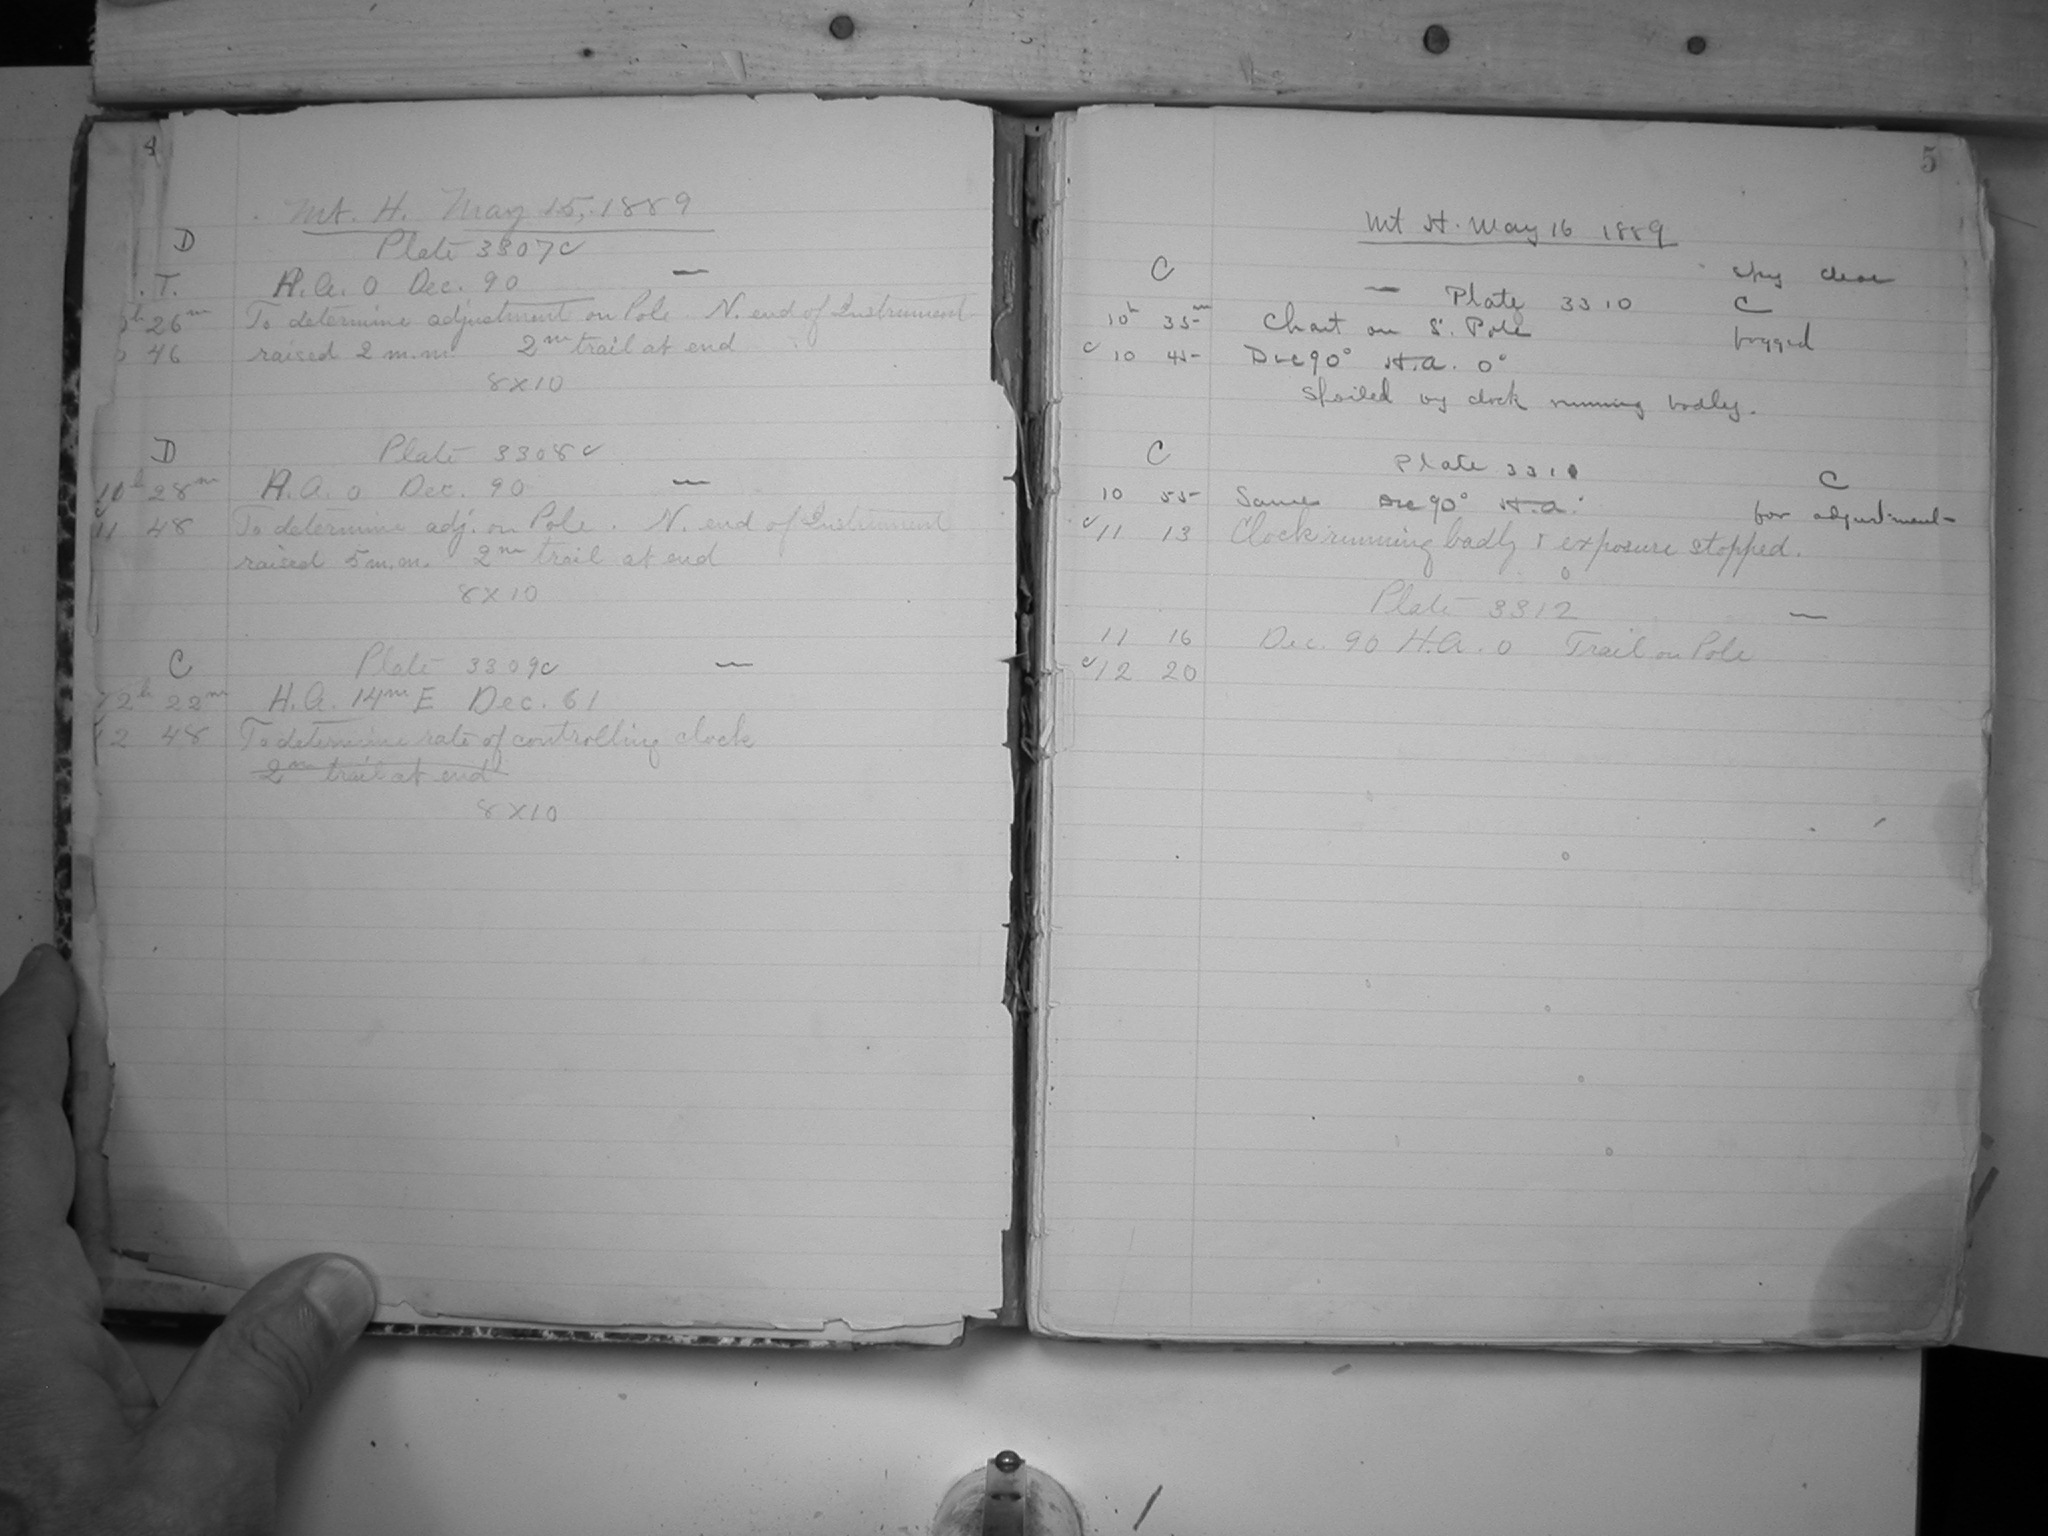 4
Mt. H. May 15, 1889
D
Plate 3307c
. T. H.A. 0 Dec. 90 —
h 26m To determine adjustment on Pole. N. end of Instrument
46 raised 2 m.m. 2m trail at end
8x10
D
Plate 3308c
10h 28m H.A. 0 Dec. 90 —
11 48 To determine adj. on Pole. N. end of Instrument
raised 5 m.m. 2m trail at end
8x10
C Plate 3309c —
12h 22m H.A. 14m E Dec. 61
12 48 To determine rate of controlling clock
2m trail at end
8x10
5
Mt H. May 16 1889
C very clear
— Plate 3310 C
10h 35m Chart on S. Pole fogged
c 10 45 Dec 90° H.A. 0°
Spoiled by clock running badly.
C
Plate 3311 C
10 55 Same Dec 90° H.A. for adjustment
c 11 13 Clock running badly & exposure stopped.
Plate 3312 —
11 16 Dec. 90 H.A. 0 Trail on Pole
c 12 20